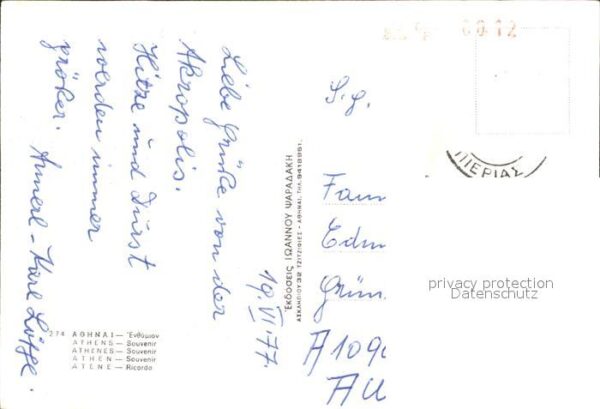 Liebe Grüße von der
Akropolis.
Hitze und Durst
werden immer
größer.
Annerl - Karl
19. VI. 77.
Εκδόσεις ΙΩΑΝΝΟΥ ΨΑΡΑΔΑΚΗ
ΑΣΚΛΗΠΙΟΥ 32 ΤΖΙΤΖΙΦΙΕΣ - ΑΘΗΝΑΙ, ΤΗΛ. 9418861
274 ΑΘΗΝΑΙ — Ἐνθύμιον
ATHENS — Souvenir
ATHENES — Souvenir
ATHEN — Souvenir
ATENE — Ricordo
S.g.
Fam
Edm
Grün
A 109
Au
00.12
ΠΙΕΡΙΑΣ
privacy protection
Datenschutz